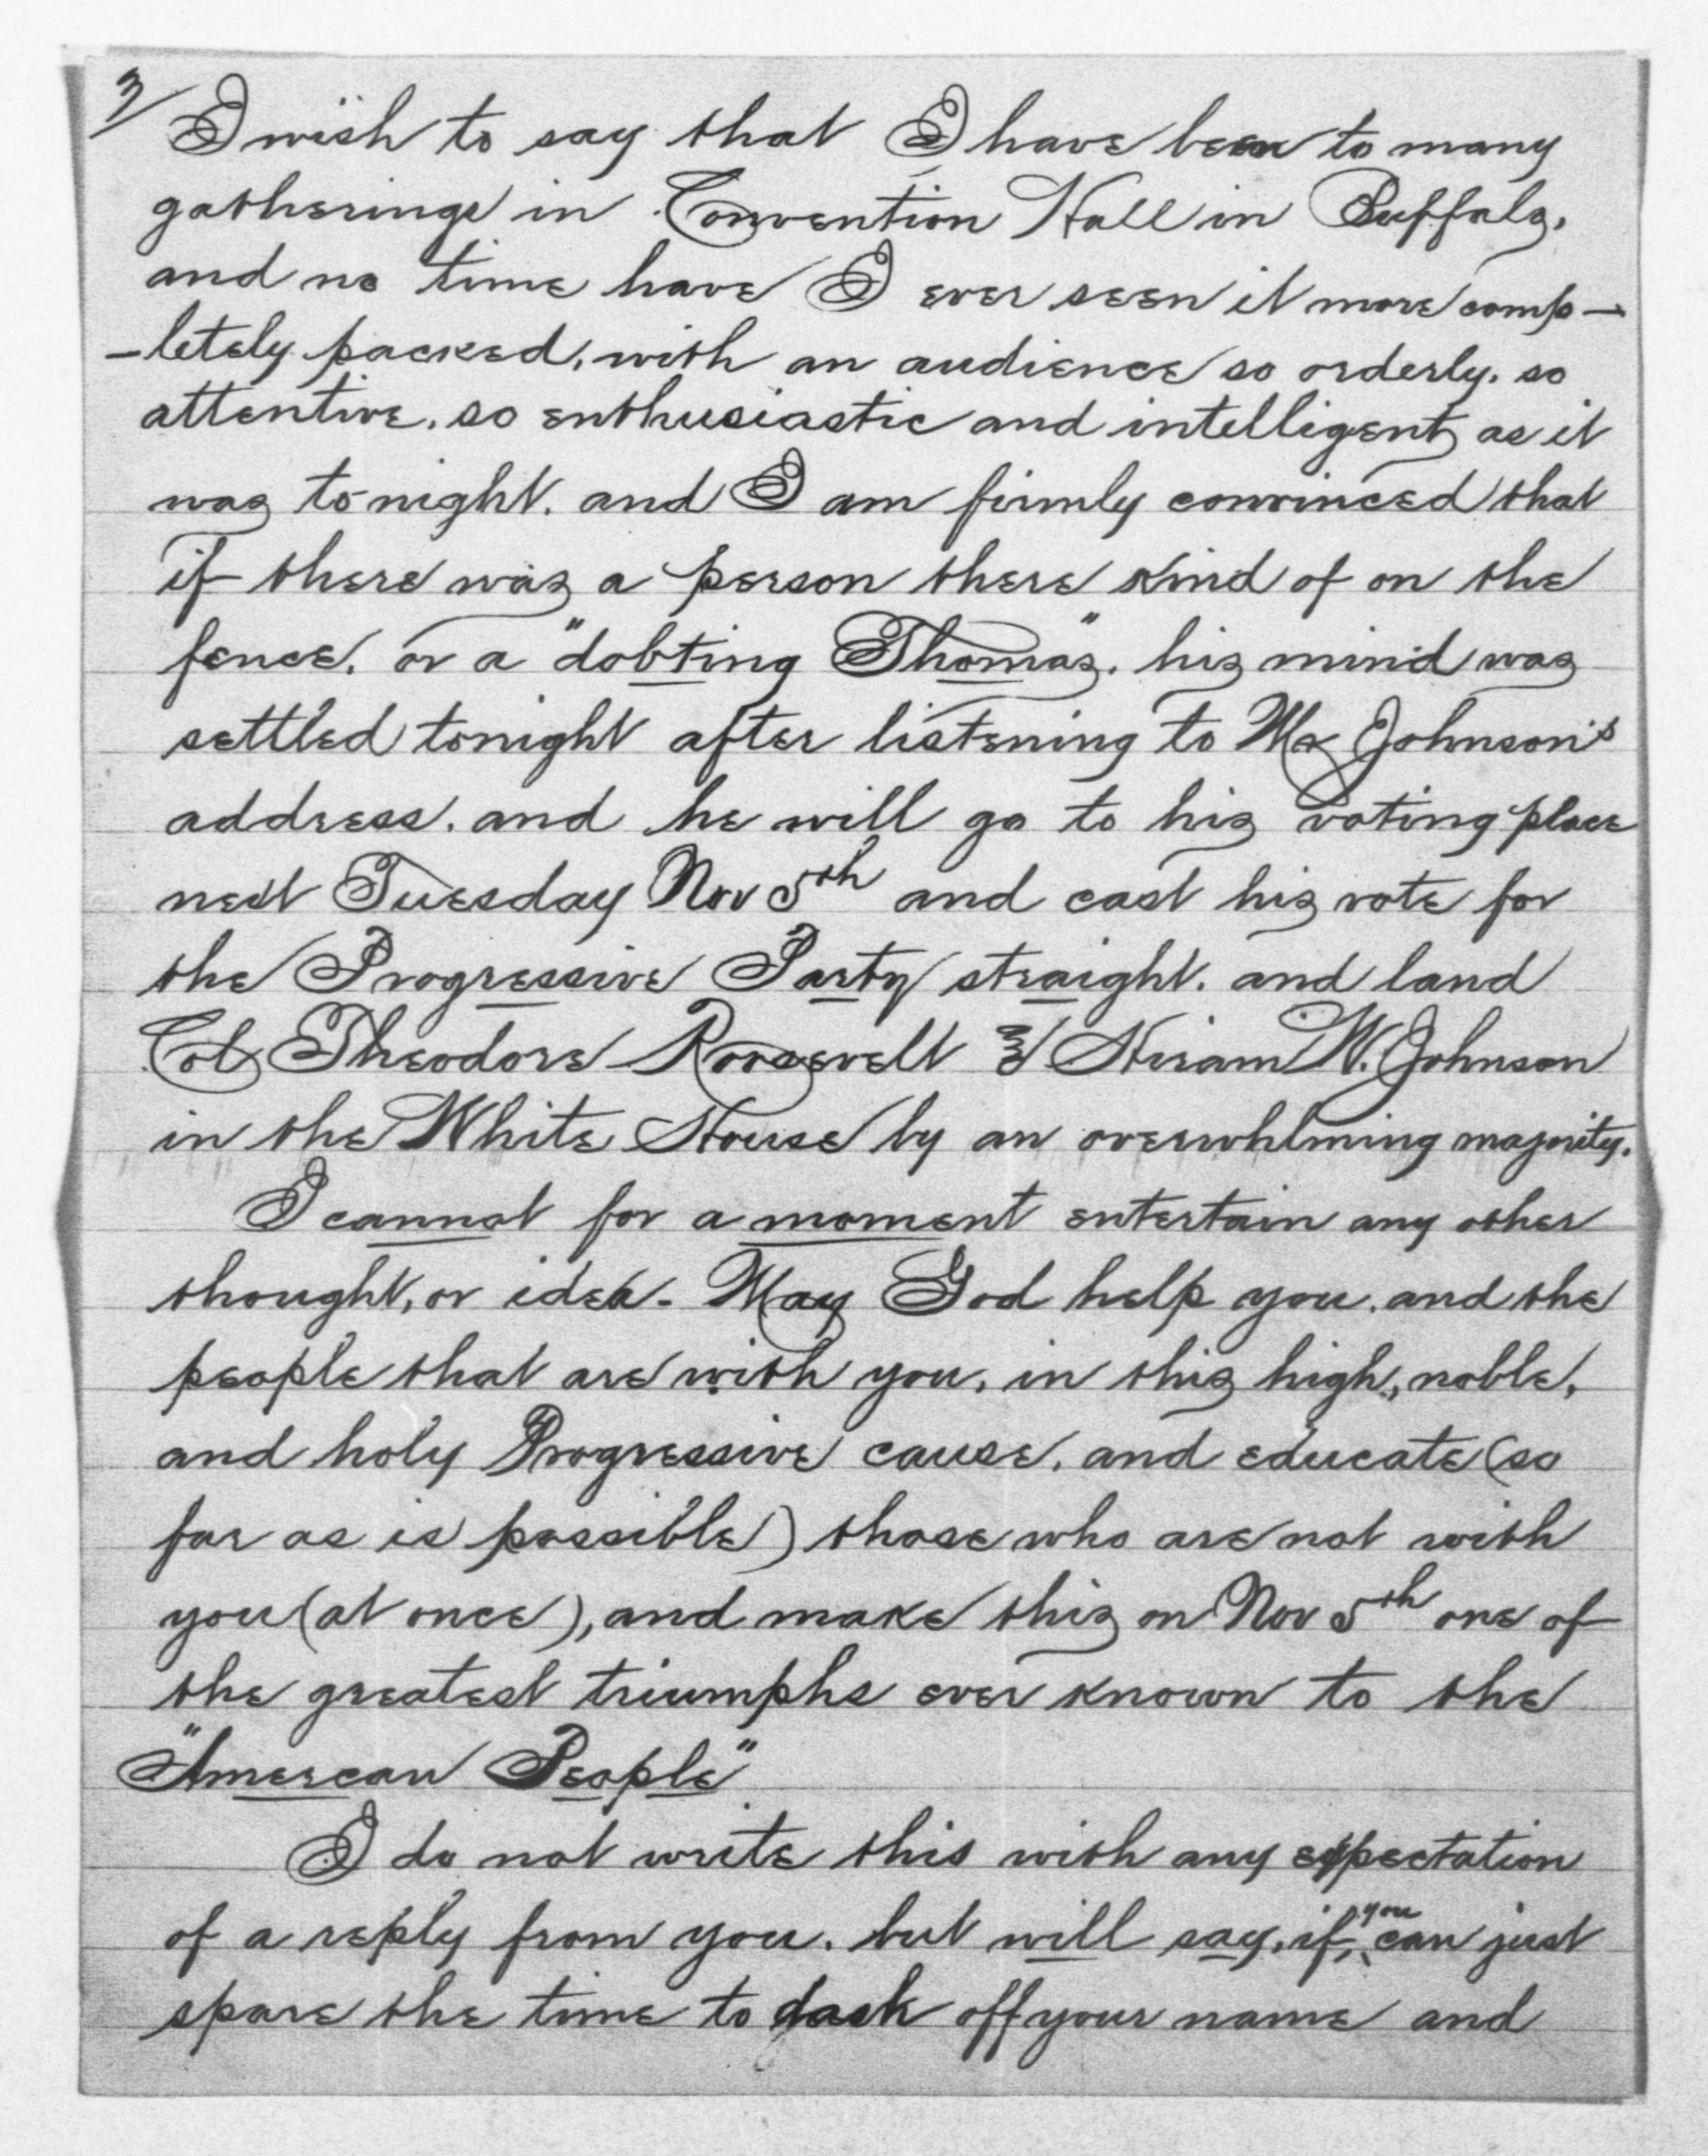 3/
I wish to say that I have been to many
gatherings in Convention Hall in Buffalo,
and no time have I ever seen it more comp-
-letely packed, with an audience so orderly, so
attentive, so enthusiastic and intelligent as it
was to-night, and I am firmly convinced that
if there was a person there kind of on the
fence, or a "dobting Thomas", his mind was
settled tonight after listening to Mr Johnson's
address, and he will go to his voting place
next Tuesday Nov 5th and cast his vote for
the Progressive Party straight, and land
Col Theodore Roosevelt & Hiram W. Johnson
in the White House by an overwhlming majority.
I cannot for a moment entertain any other
thought, or idea. May God help you, and the
people that are with you, in this high, noble,
and holy Progressive cause, and educate (so
far as is possible) those who are not with
you (at once), and make this on Nov 5th one of
the greatest triumphs ever known to the
"Amercan People"
I do not write this with any expectation
of a reply from you, but will say, if, you can just
spare the time to dash off your name and